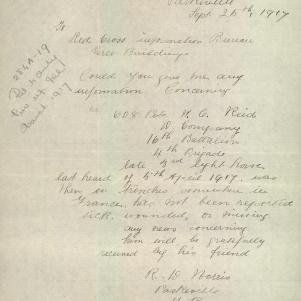 Paskeville
Sept 25th, 1917
To
Red Cross information Bureau
Verco Buildings
Could You give me any
information Concerning
608 Pte H. C. Reid
D Company
16th Battalion
4th Brigade
late 3rd light horse
last heard of 5th April 1917. was
then in trenches somewhere in
France, has not been reported
sick, wounded, or missing
any news concerning
him will be gratefully
received by his friend
R. D. Norris
Paskeville
284A-19
August 1917